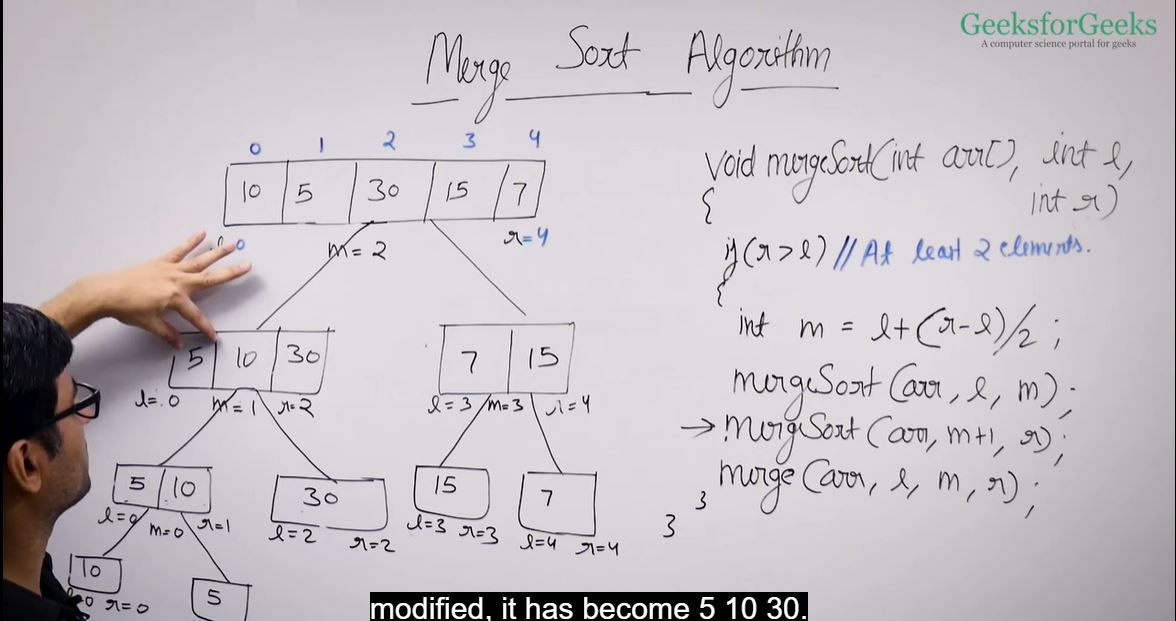 GeeksforGeeks
A computer science portal for geeks
Merge Sort Algorithm
0 1 2 3 4
10 5 30 15 7
0 m=2 r=4
5 10 30
l=0 m=1 r=2
7 15
l=3 m=3 r=4
5 10
l=0 m=0 r=1
30
l=2 r=2
15
l=3 r=3
7
l=4 r=4
10
r=0
5
void mergeSort(int arr[], int l,
int r)
{
if(r>l) //At least 2 elements.
{
int m = l+(r-l)/2;
mergeSort(arr, l, m);
→ mergeSort(arr, m+1, r);
merge(arr, l, m, r);
}
}
modified, it has become 5 10 30.